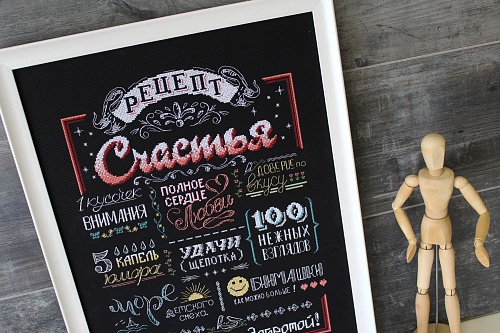 РЕЦЕПТ
Счастья
1 кусочек
ВНИМАНИЯ
ПОЛНОЕ
СЕРДЦЕ
Любви
ДОВЕРИЕ по
вкусу
5 КАПЕЛЬ
юмора
УДАЧИ
(ЩЕПОТКА)
100
НЕЖНЫХ
ВЗГЛЯДОВ
море
ДЕТСКОГО
смеха
КАК МОЖНО БОЛЬШЕ!
Добротой!